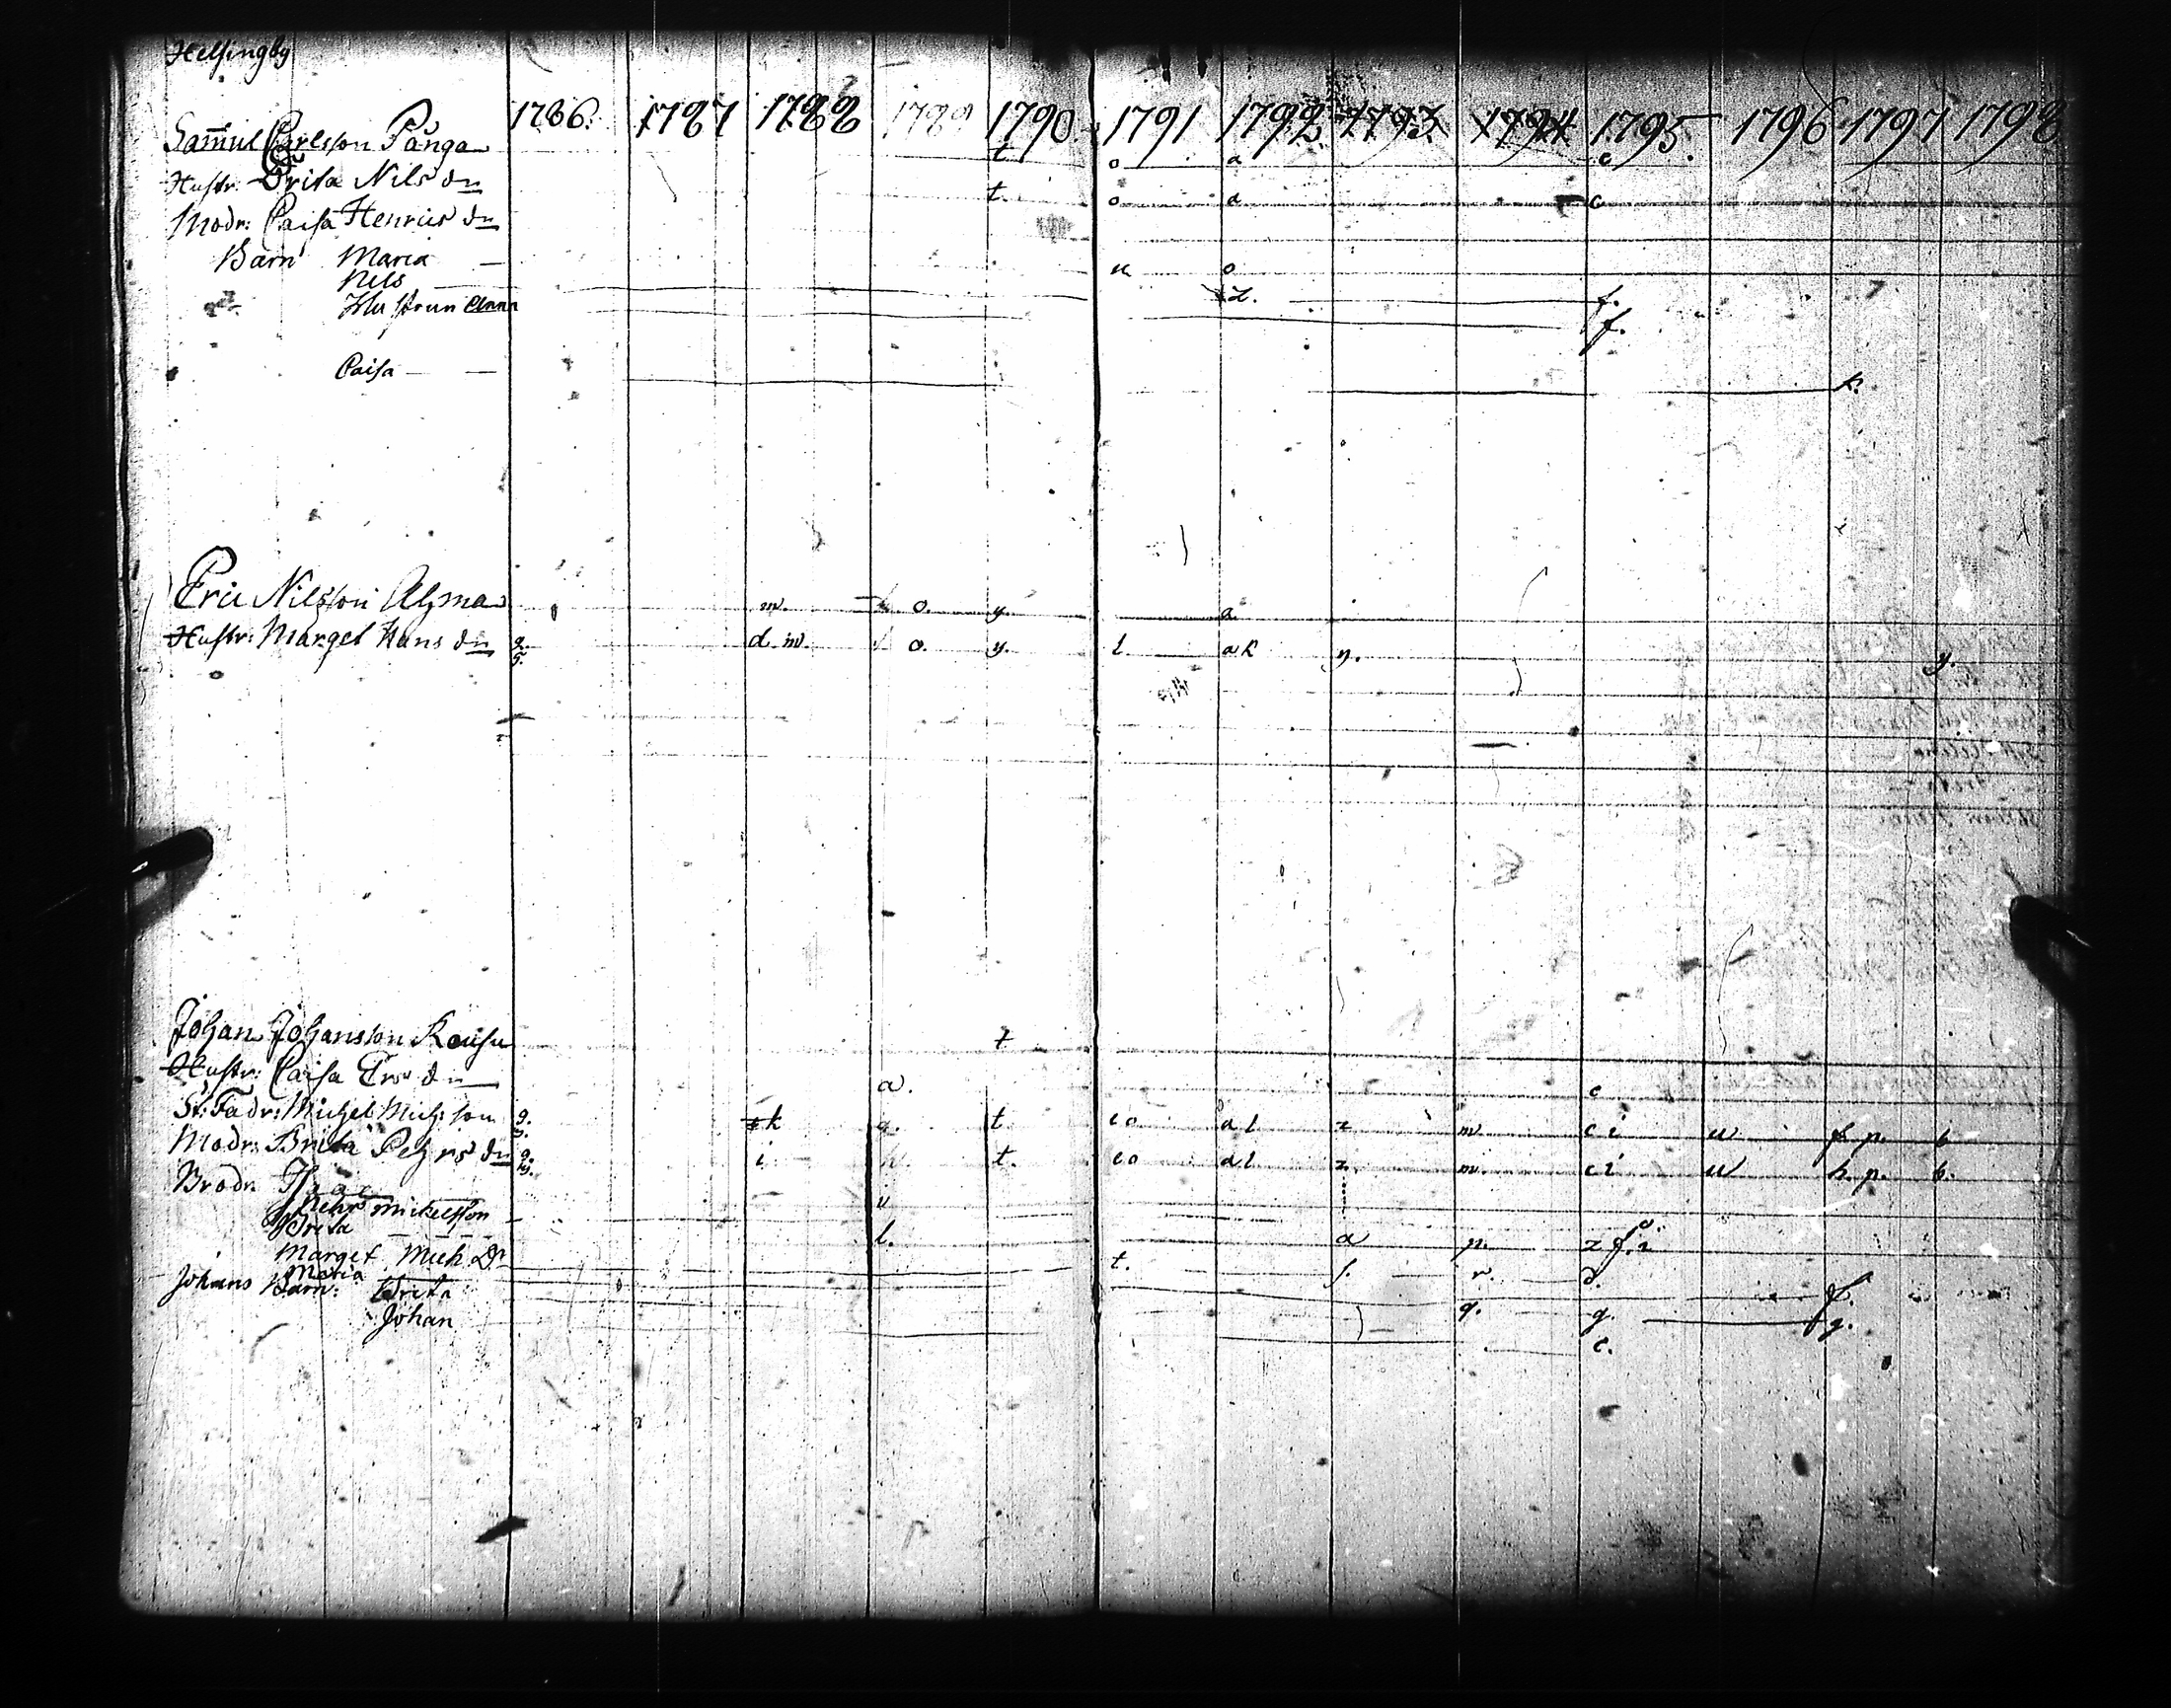 Helsingby
1786. 1787 1788 1789 1790. 1791 1792. 1793 1794 1795. 1796 1797 1798
Samul Carlsson Pånga t o a c
Hustr: Brita Nils dr t. o a c
Modr: Caisa Henrics dr
Barn Maria u o
Nils z. f.
Hustrun Anna f.
Caisa
Eric Nilsson m. o. y. a
Hustr: Marget Hans dr g. d m. o. y. l ak y. y.
Johan Johansson t
Hustr: Caisa Ers dr a. c
St: Fadr: Michel Mich: son g. k g. t co al z m c i u p. b
Modr: Brita Pehrs dr g. i t. co al z m. c i u h. p. b.
Brodr Isaac u
Pehr Mickelsson
Brita l. a p. z f. i
Marget Mich Dr t. f. r. d.
Maria
Johans Barn: Brita q. g. f. g.
Johan c.